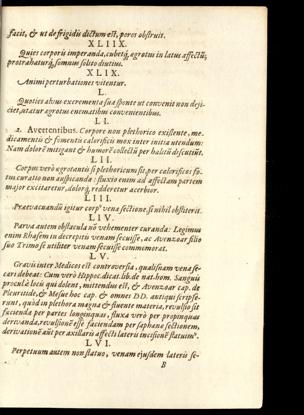 facit, & ut de frigidis dictum est, poros obstruit.
XLIIX.
Quies corporis imperanda, cubetq́, ægrotus in latus affectū;
protrahaturq́, somnus solito diutius.
XLIX.
Animi perturbationes vitentur.
L.
Quoties alvus excrementa sua sponte ut convenit non deji-
ciet, utatur ægrotus enematibus convenientibus.
LI.
2. Avertentibus. Corpore non plethorico existente, me-
dicamentis & fomentis calorificis mox inter initia utendum:
Nam dolorē mitigant & humorē collectū per halitū discutiūt.
LII.
Corpus verò ægrotantis si plethoricum sit, per calorificos fo-
tus curatio non auspicanda: fluxio enim ad affectam partem
major excitaretur, dolorq́, redderetur acerbior.
LIII.
Præevacuandū igitur corp9 vena sectione, si nihil obstiterit.
LIV.
Parva autem obstacula nō vehementer curanda: Legimus
enim Rhasem in decrepiti venam secuisse, ac Avenzoar filio
suo Trimo se utiliter venam secuisse commemorat.
LV.
Gravis inter Medicos est controversia, qualisnam vena se-
cari debeat: Cum verò Hippoc. dicat. lib. de nat. hom. Sanguis
procul à locis qui dolent, mittendus est, & Avenzoar cap. de
Pleuritide, & Mesue hoc cap. & omnes DD. antiqui scripse-
runt, quòd in plethora magna & fluente materia, revulsio sit
facienda per partes longinquas, fluxa verò per propinquas
derivanda, revulsionē esse faciendam per saphenæ sectionem,
derivationē aūt per axillaris affecti lateris incisionē statuim9.
LVI.
Perpetuum autem non statuo, venam ejusdem lateris se-
B